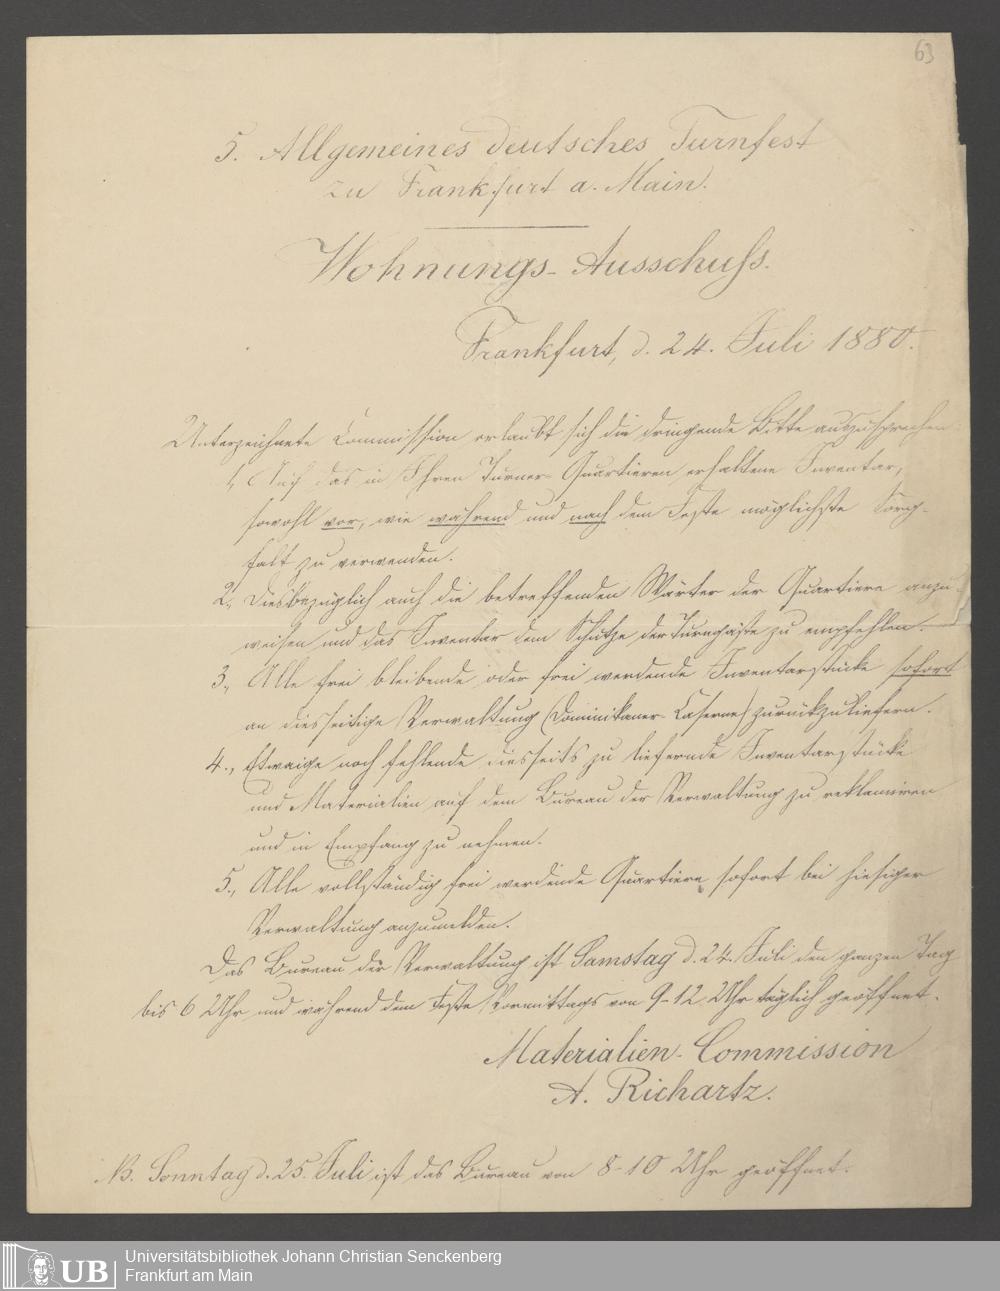 63
5. Allgemeines deutsches Turnfest
zu Frankfurt a. Main.
Wohnungs-Ausschuss.
Frankfurt, d. 24. Juli 1880.
Unterzeichnete Commission erlaubt sich die dringende Bitte auszusprechen
1, Auf das in Ihren Turner-Quartieren erhaltene Inventar,
sowohl vor, wie während und nach dem Feste möglichste Sorg-
falt zu verwenden.
2., Diesbezüglich auch die betreffenden Wärter der Quartiere anzu-
weisen und das Inventar dem Schutze der Turngäste zu empfehlen.
3., Alle frei bleibende oder frei werdende Inventarstücke sofort
an diesseitige Verwaltung (Dominikaner-Caserne) zurückzuliefern.
4., Etwaige noch fehlende diesseits zu liefernde Inventarstücke
und Materialien auf dem Bureau der Verwaltung zu reklamiren
und in Empfang zu nehmen.
5., Alle vollständig frei werdende Quartiere sofort bei hiesiger
Verwaltung anzumelden.
Das Bureau der Verwaltung ist Samstag d. 24. Juli den ganzen Tag
bis 6 Uhr und während dem Feste Vormittags von 9-12 Uhr täglich geöffnet.
Materialien-Commission
A. Richartz.
NB. Sonntag d. 25. Juli ist das Bureau von 8-10 Uhr geöffnet.
UB
Universitätsbibliothek Johann Christian Senckenberg
Frankfurt am Main